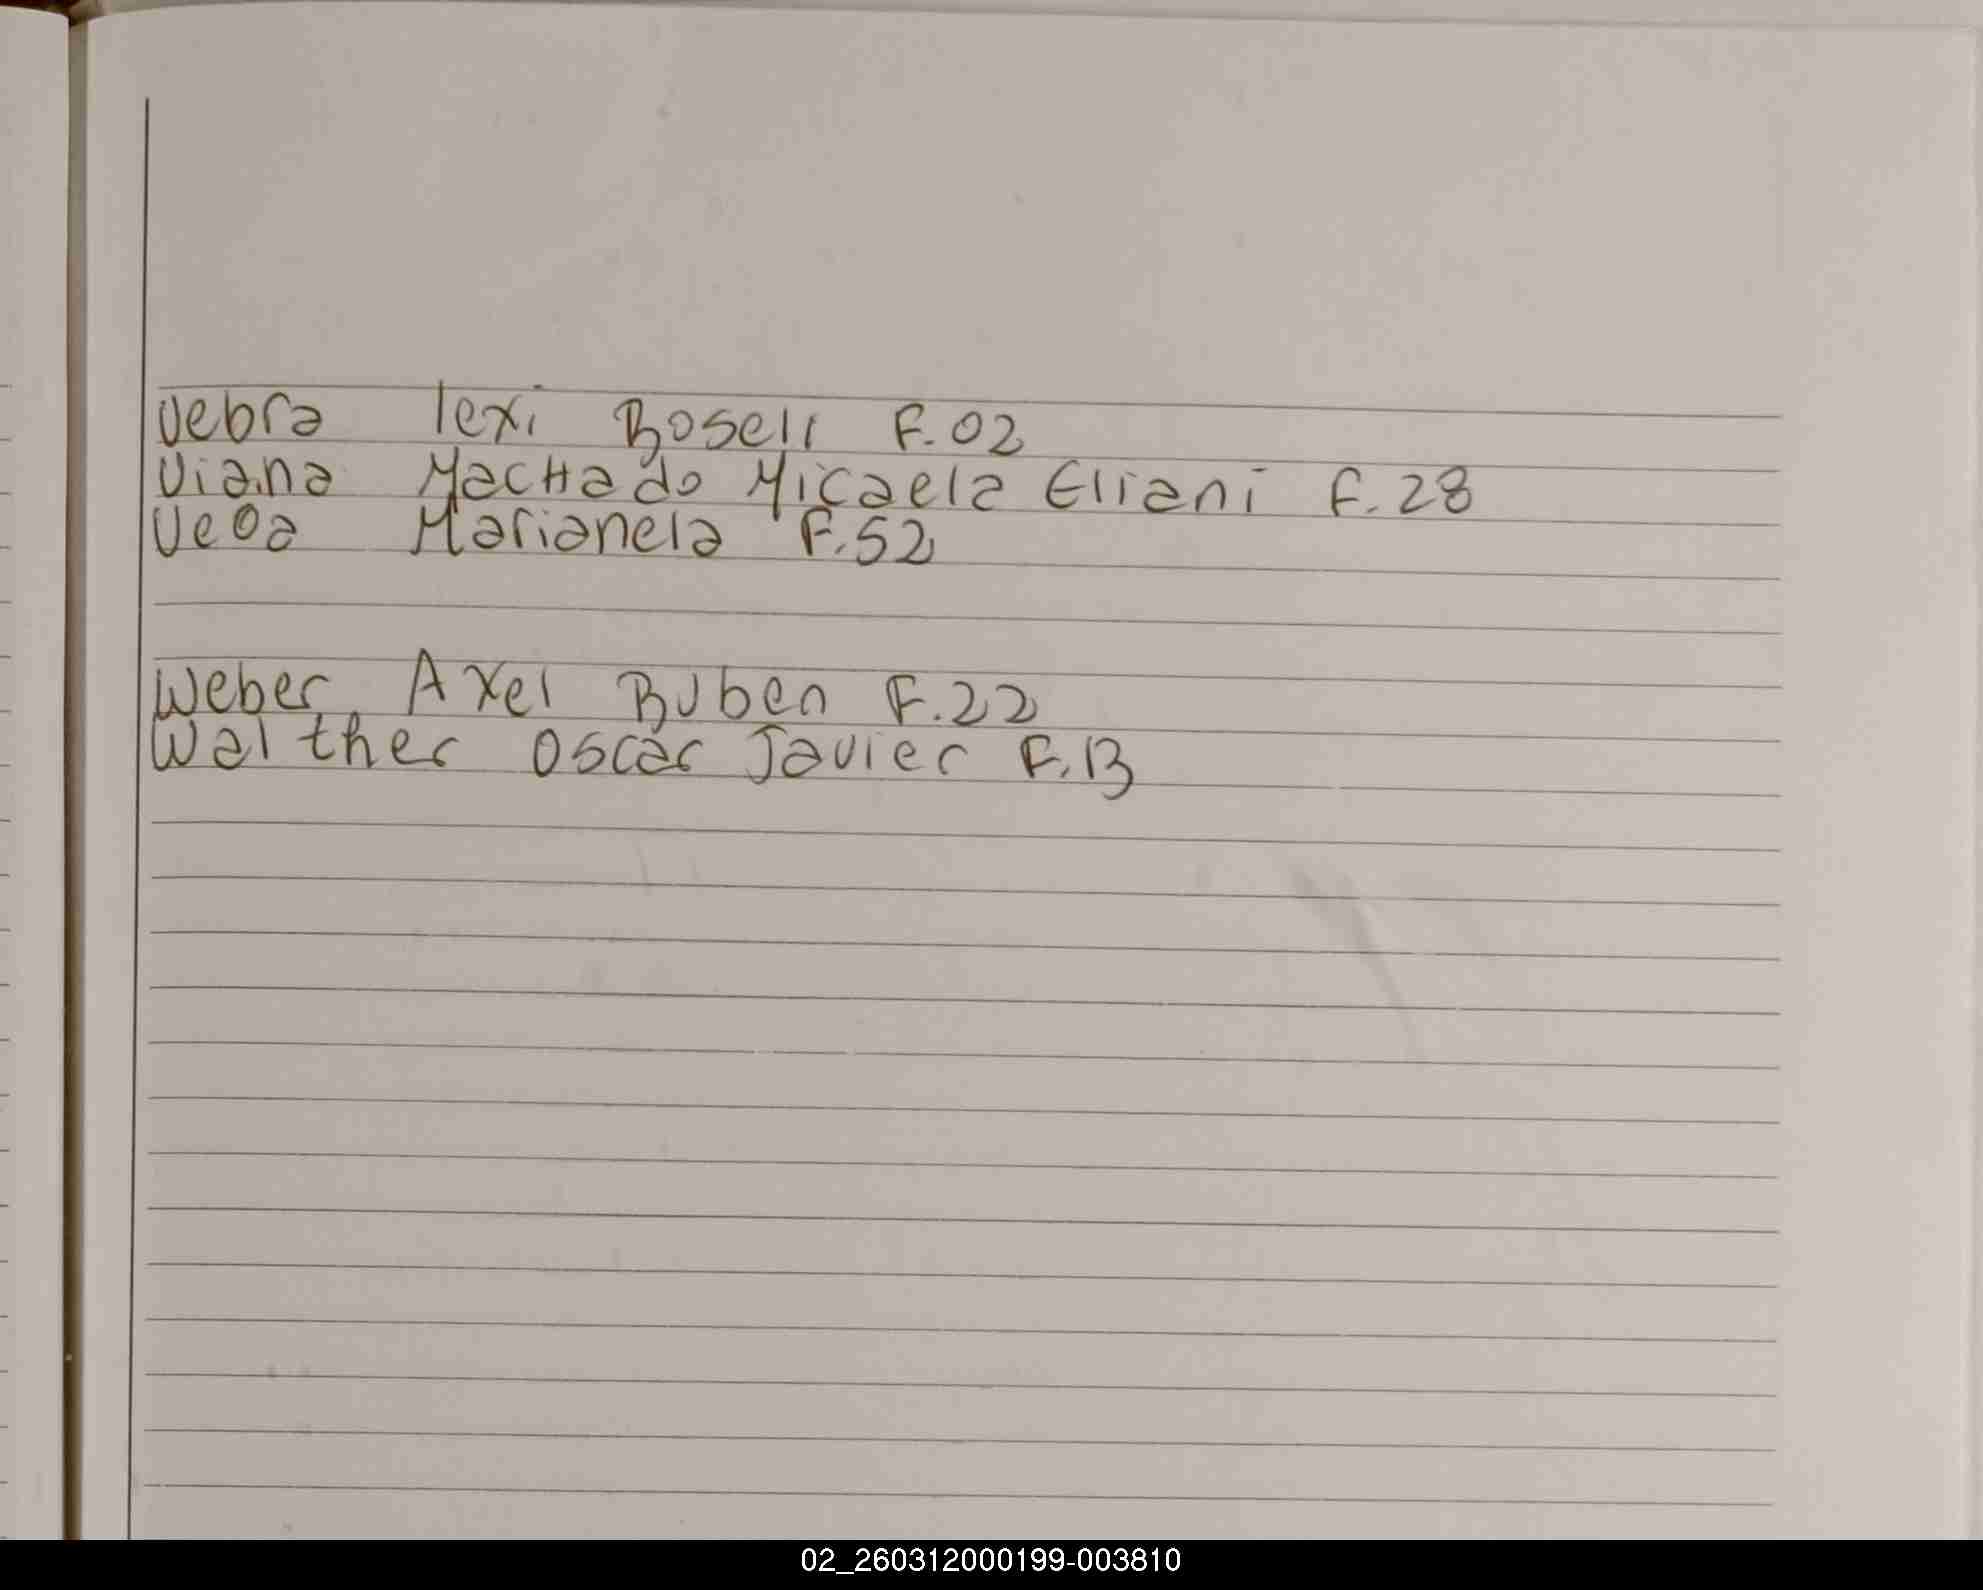 Vebra lexi Roseli F.02
Viana MacHado Micaela Eliani F.28
Vega Marianela F.52
Weber Axel Ruben F.22
Walther Oscar Javier F.13
02_260312000199-003810